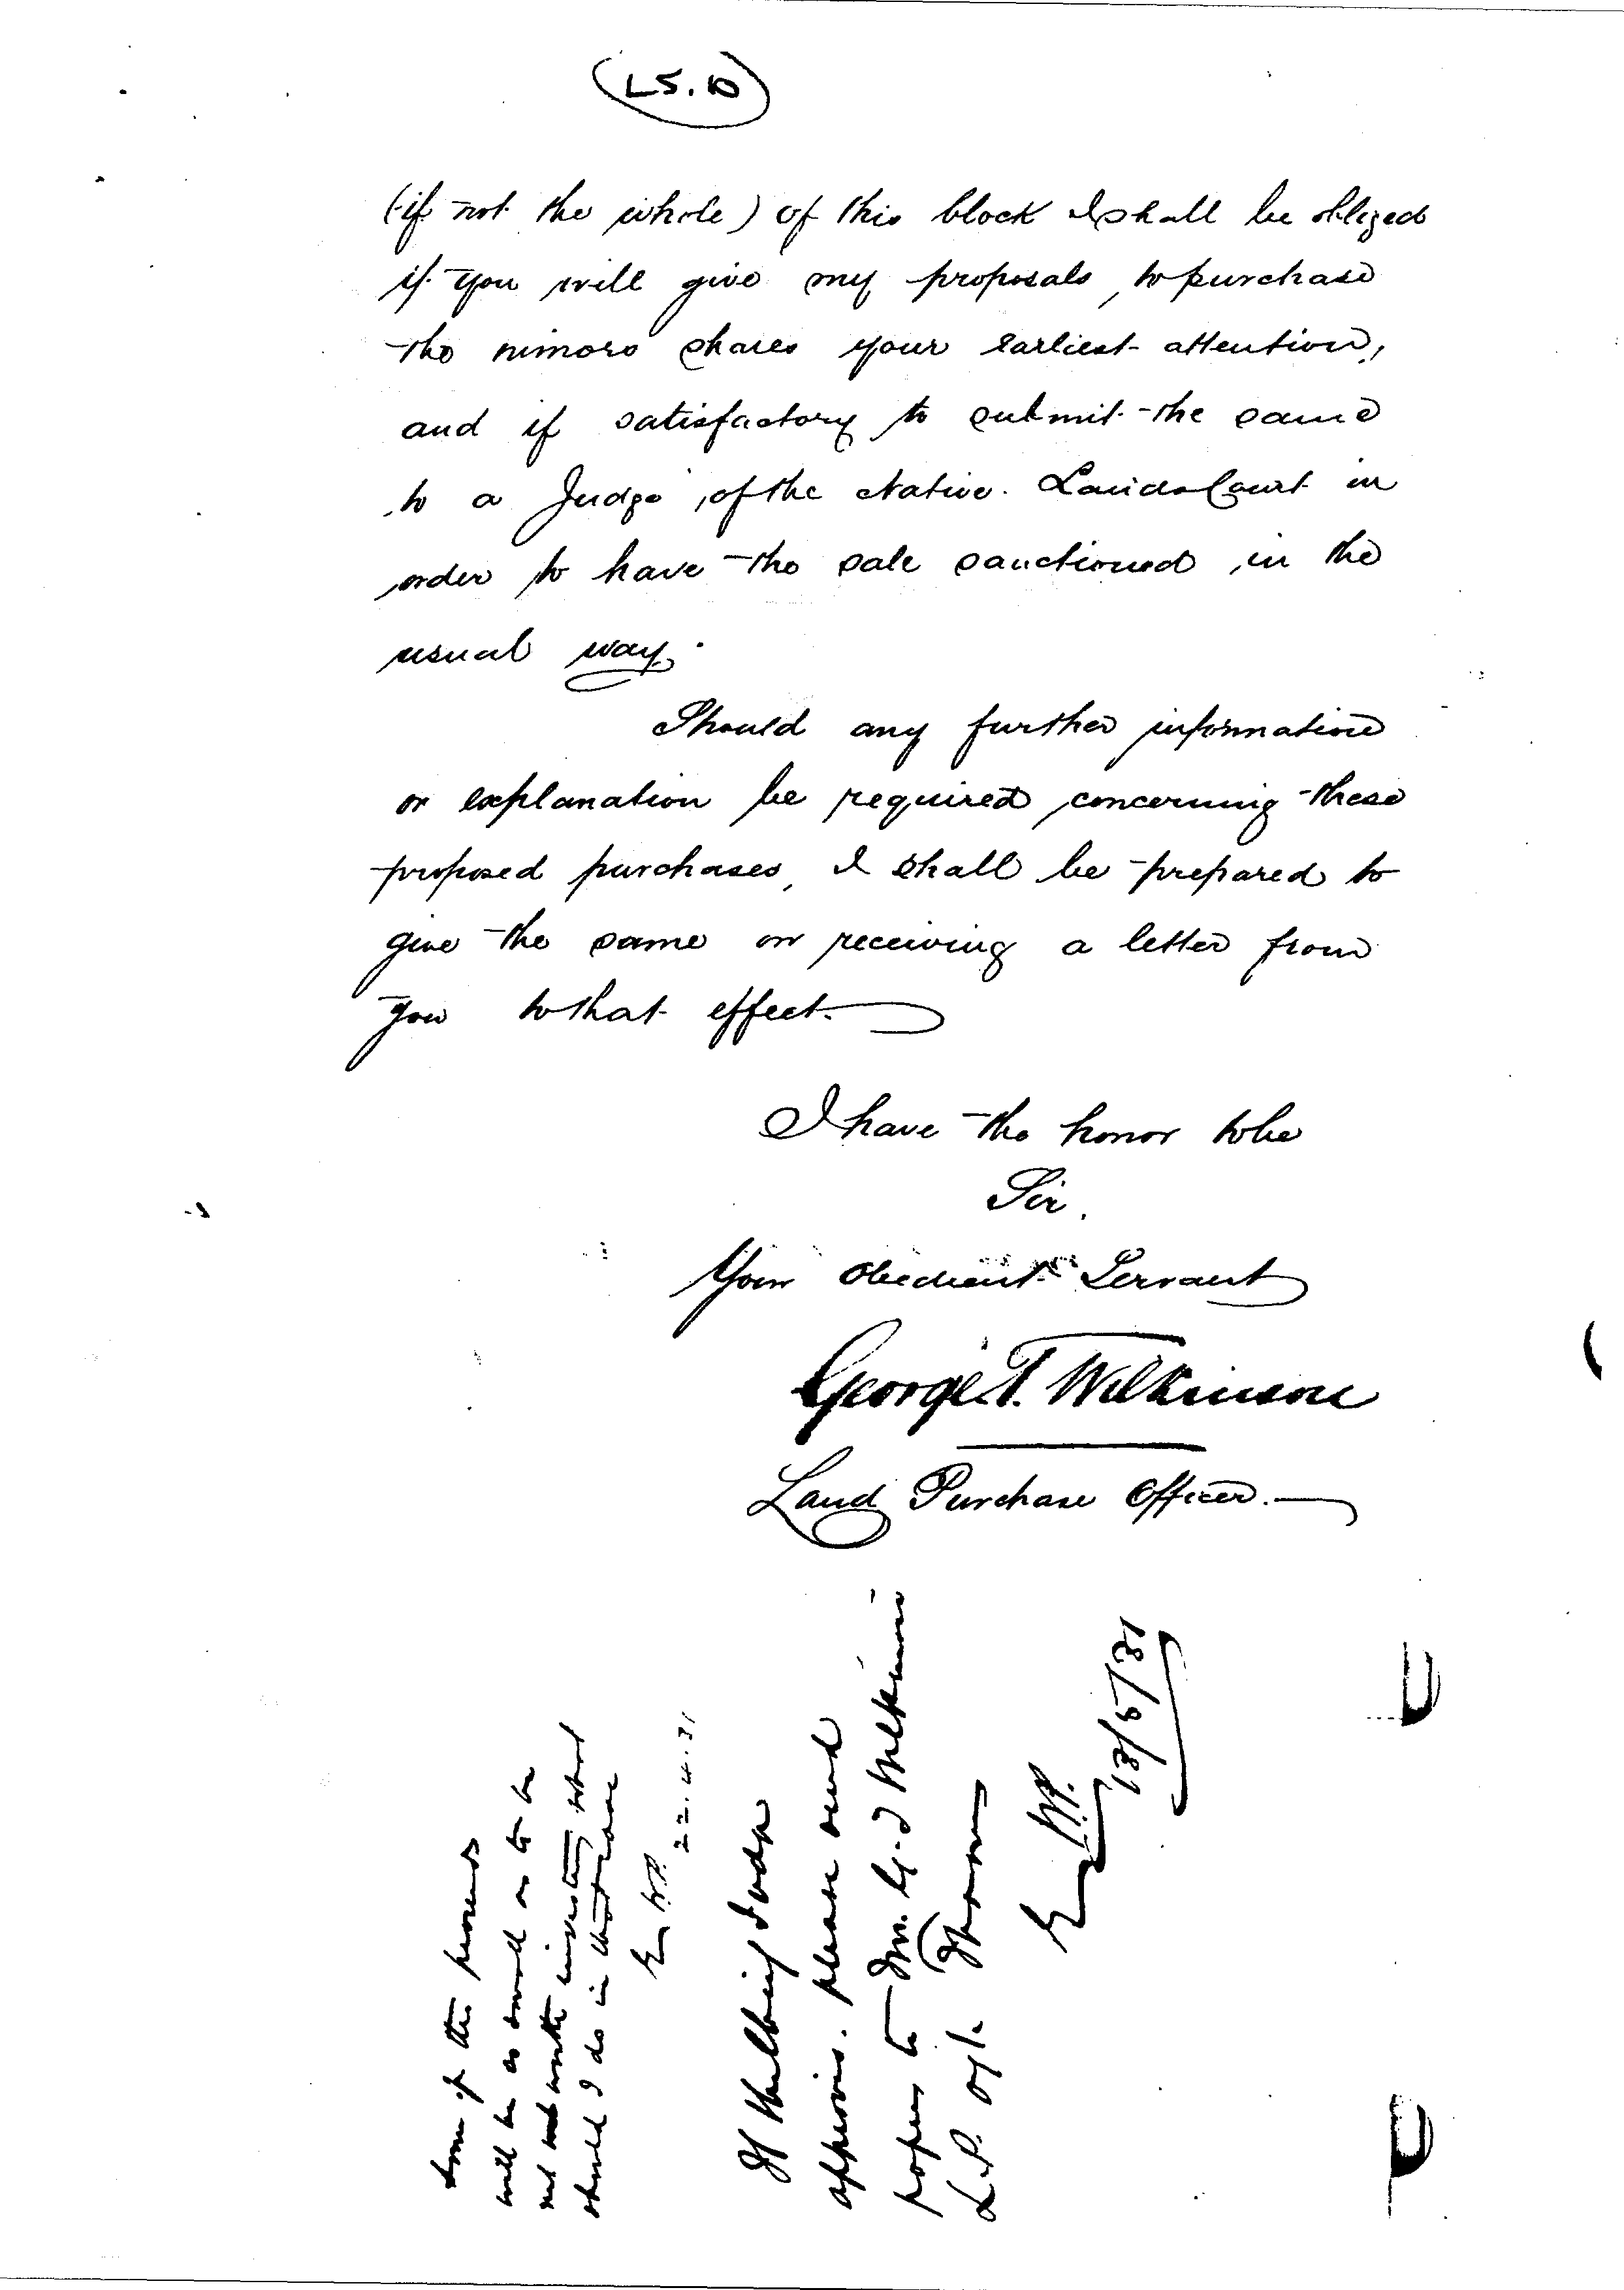 (L5.10)
(if not the whole) of this block I shall be obliged
if you will give my proposals, to purchase
the minors shares your earliest attention,
and if satisfactory to submit the same
to a Judge of the Native Lands Court in
order to have the sale sanctioned in the
usual way.
Should any further information
or explanation be required concerning these
proposed purchases, I shall be prepared to
give the same on receiving a letter from
you to that effect.
I have the honor to be
Sir.
Your Obedient Servant
George T. Wilkinson
Land Purchase Officer.
Some of the
will be so small as to be
not worth investing what
should I do in that case
22.4.81
approves. please send
papers to Mr. G. T Wilkinson
L.P. Of. Thames
13/5/81